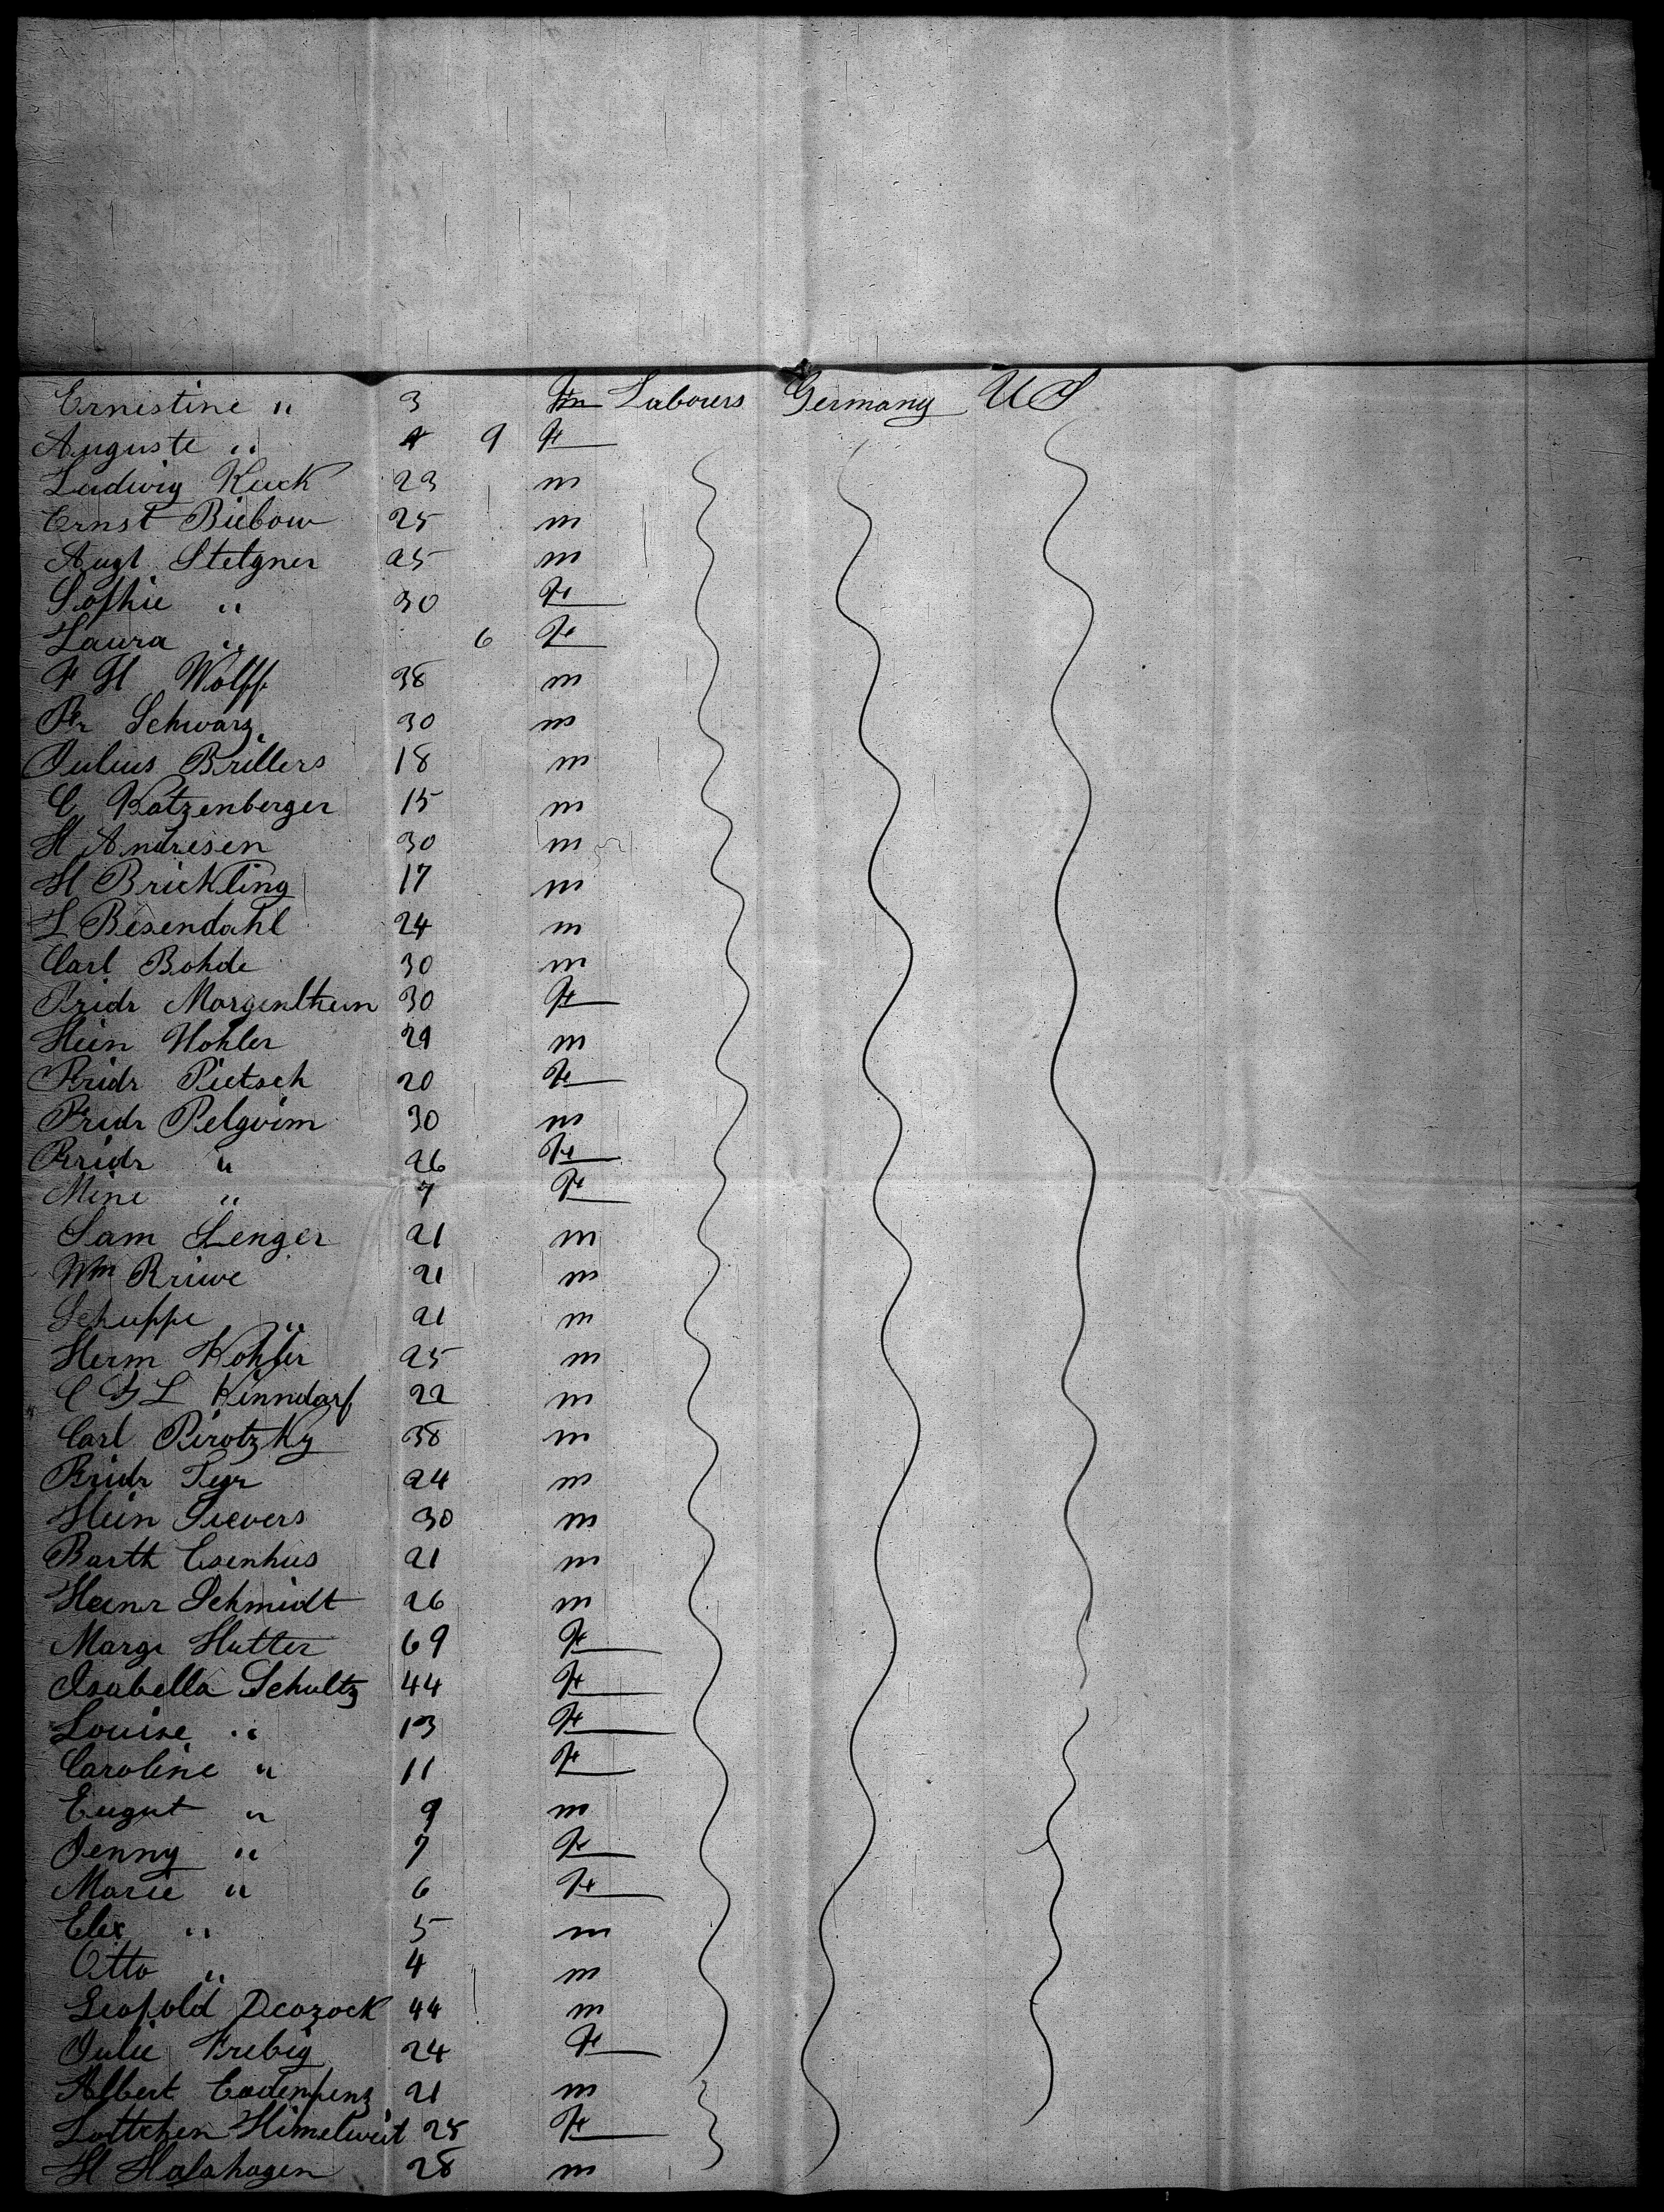 Ernestine " 3 Fm Labours Germany US
Auguste " 9 F
Ludwig Kuck 23 m
Ernst Biebow 25 m
Augt Stelgner 25 m
Sophie " 30 F
Laura " 6 F
F H Wolff 38 m
Fr Schwarz 30 m
Julius Brillers 18 m
C Katzenberger 15 m
H Andresen 30 m
H Brickling 17 m
L Besendahl 24 m
Carl Bohde 30 m
Fridr 30 F
Hein Hohler 29 m
Fridr Pietsch 20 F
Fridr Pelgrim 30 m
Fridr " 26 F
Mine " 7 F
Sam Senger 21 m
Wm Kriwe 21 m
Schuppe " 21 m
Herm Kohler 25 m
C F L Kinndorf 22 m
Carl Pirotzky 38 m
Fridr 24 m
Hein Sievers 30 m
Barth Esenhus 21 m
Heinr Schmidt 26 m
Marge Hutter 69 F
Isabella Schultz 44 F
Louise " 13 F
Caroline " 11 F
" 9 m
Jenny " 7 F
Marie " 6 F
Elix " 5 m
Otto " 4 m
Leopold 44 m
Julie Frebig 24 F
Albert 21 m
Lottchen Himelweit 25 F
H Halahagen 28 m